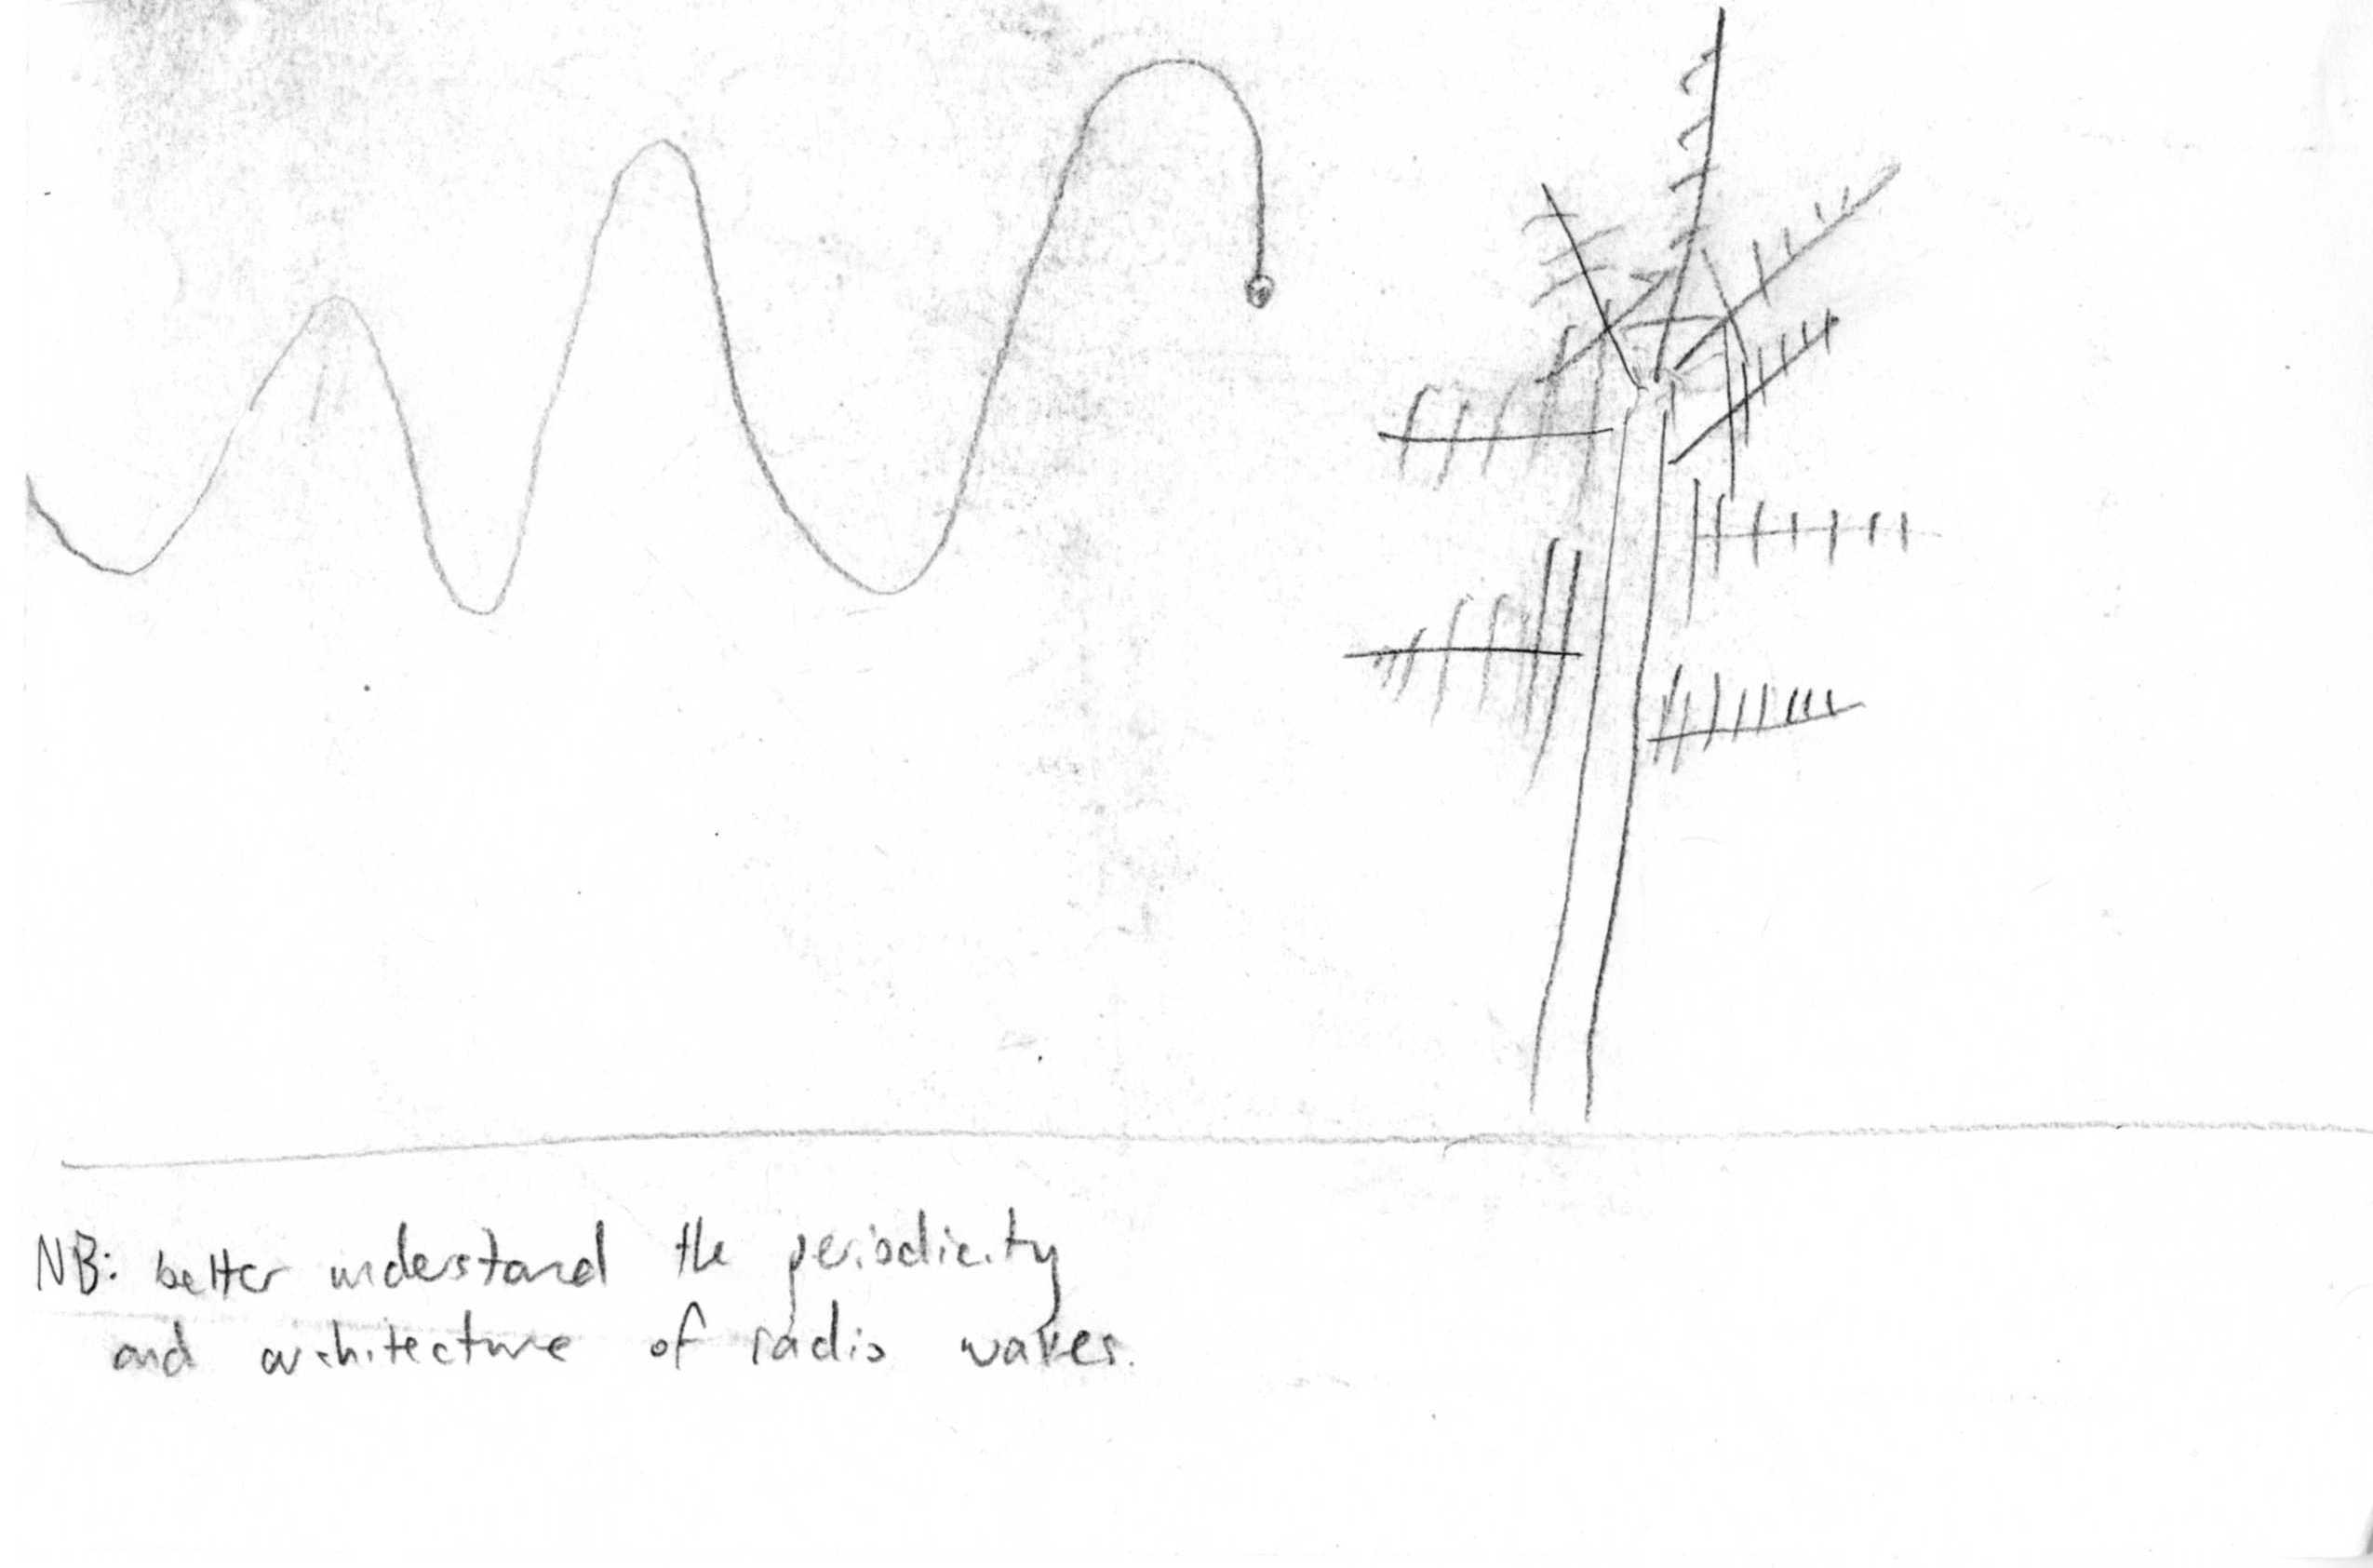 NB: better understand the periodicity
and architecture of radio waves.